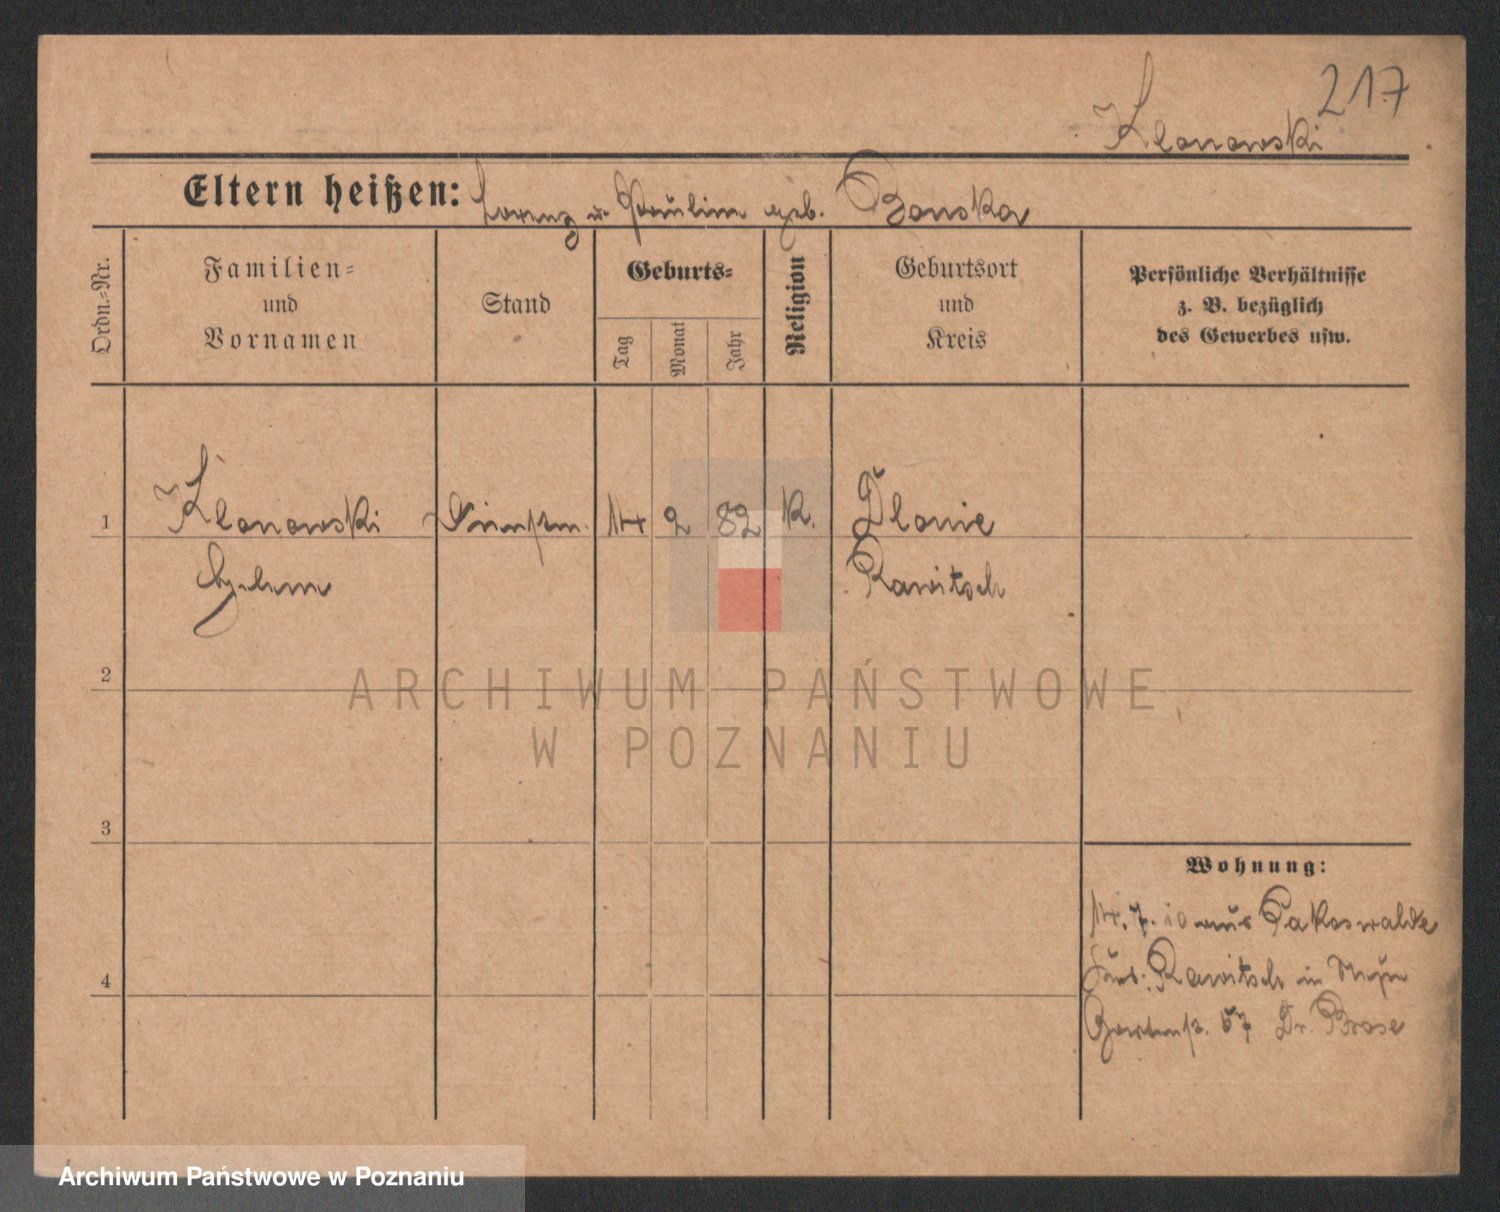 217
Klonowski
Eltern heißen: Lorenz u. Paulina geb. Banska
Ordn.-Nr.
Familien-
und
Vornamen
Stand
Geburts-
Tag
Monat
Jahr
Religion
Geburtsort
und
Kreis
Persönliche Verhältnisse
z. B. bezüglich
des Gewerbes usw.
1 Klonowski 14 2 82 K. Dlonie
Rawitsch
2
ARCHIWUM PAŃSTWOWE
W POZNANIU
3
Wohnung:
14. 7. 10 aus Pakoswalde
Rawitsch in
4
Gartenstr. 57 Dr. Brose
Archiwum Państwowe w Poznaniu